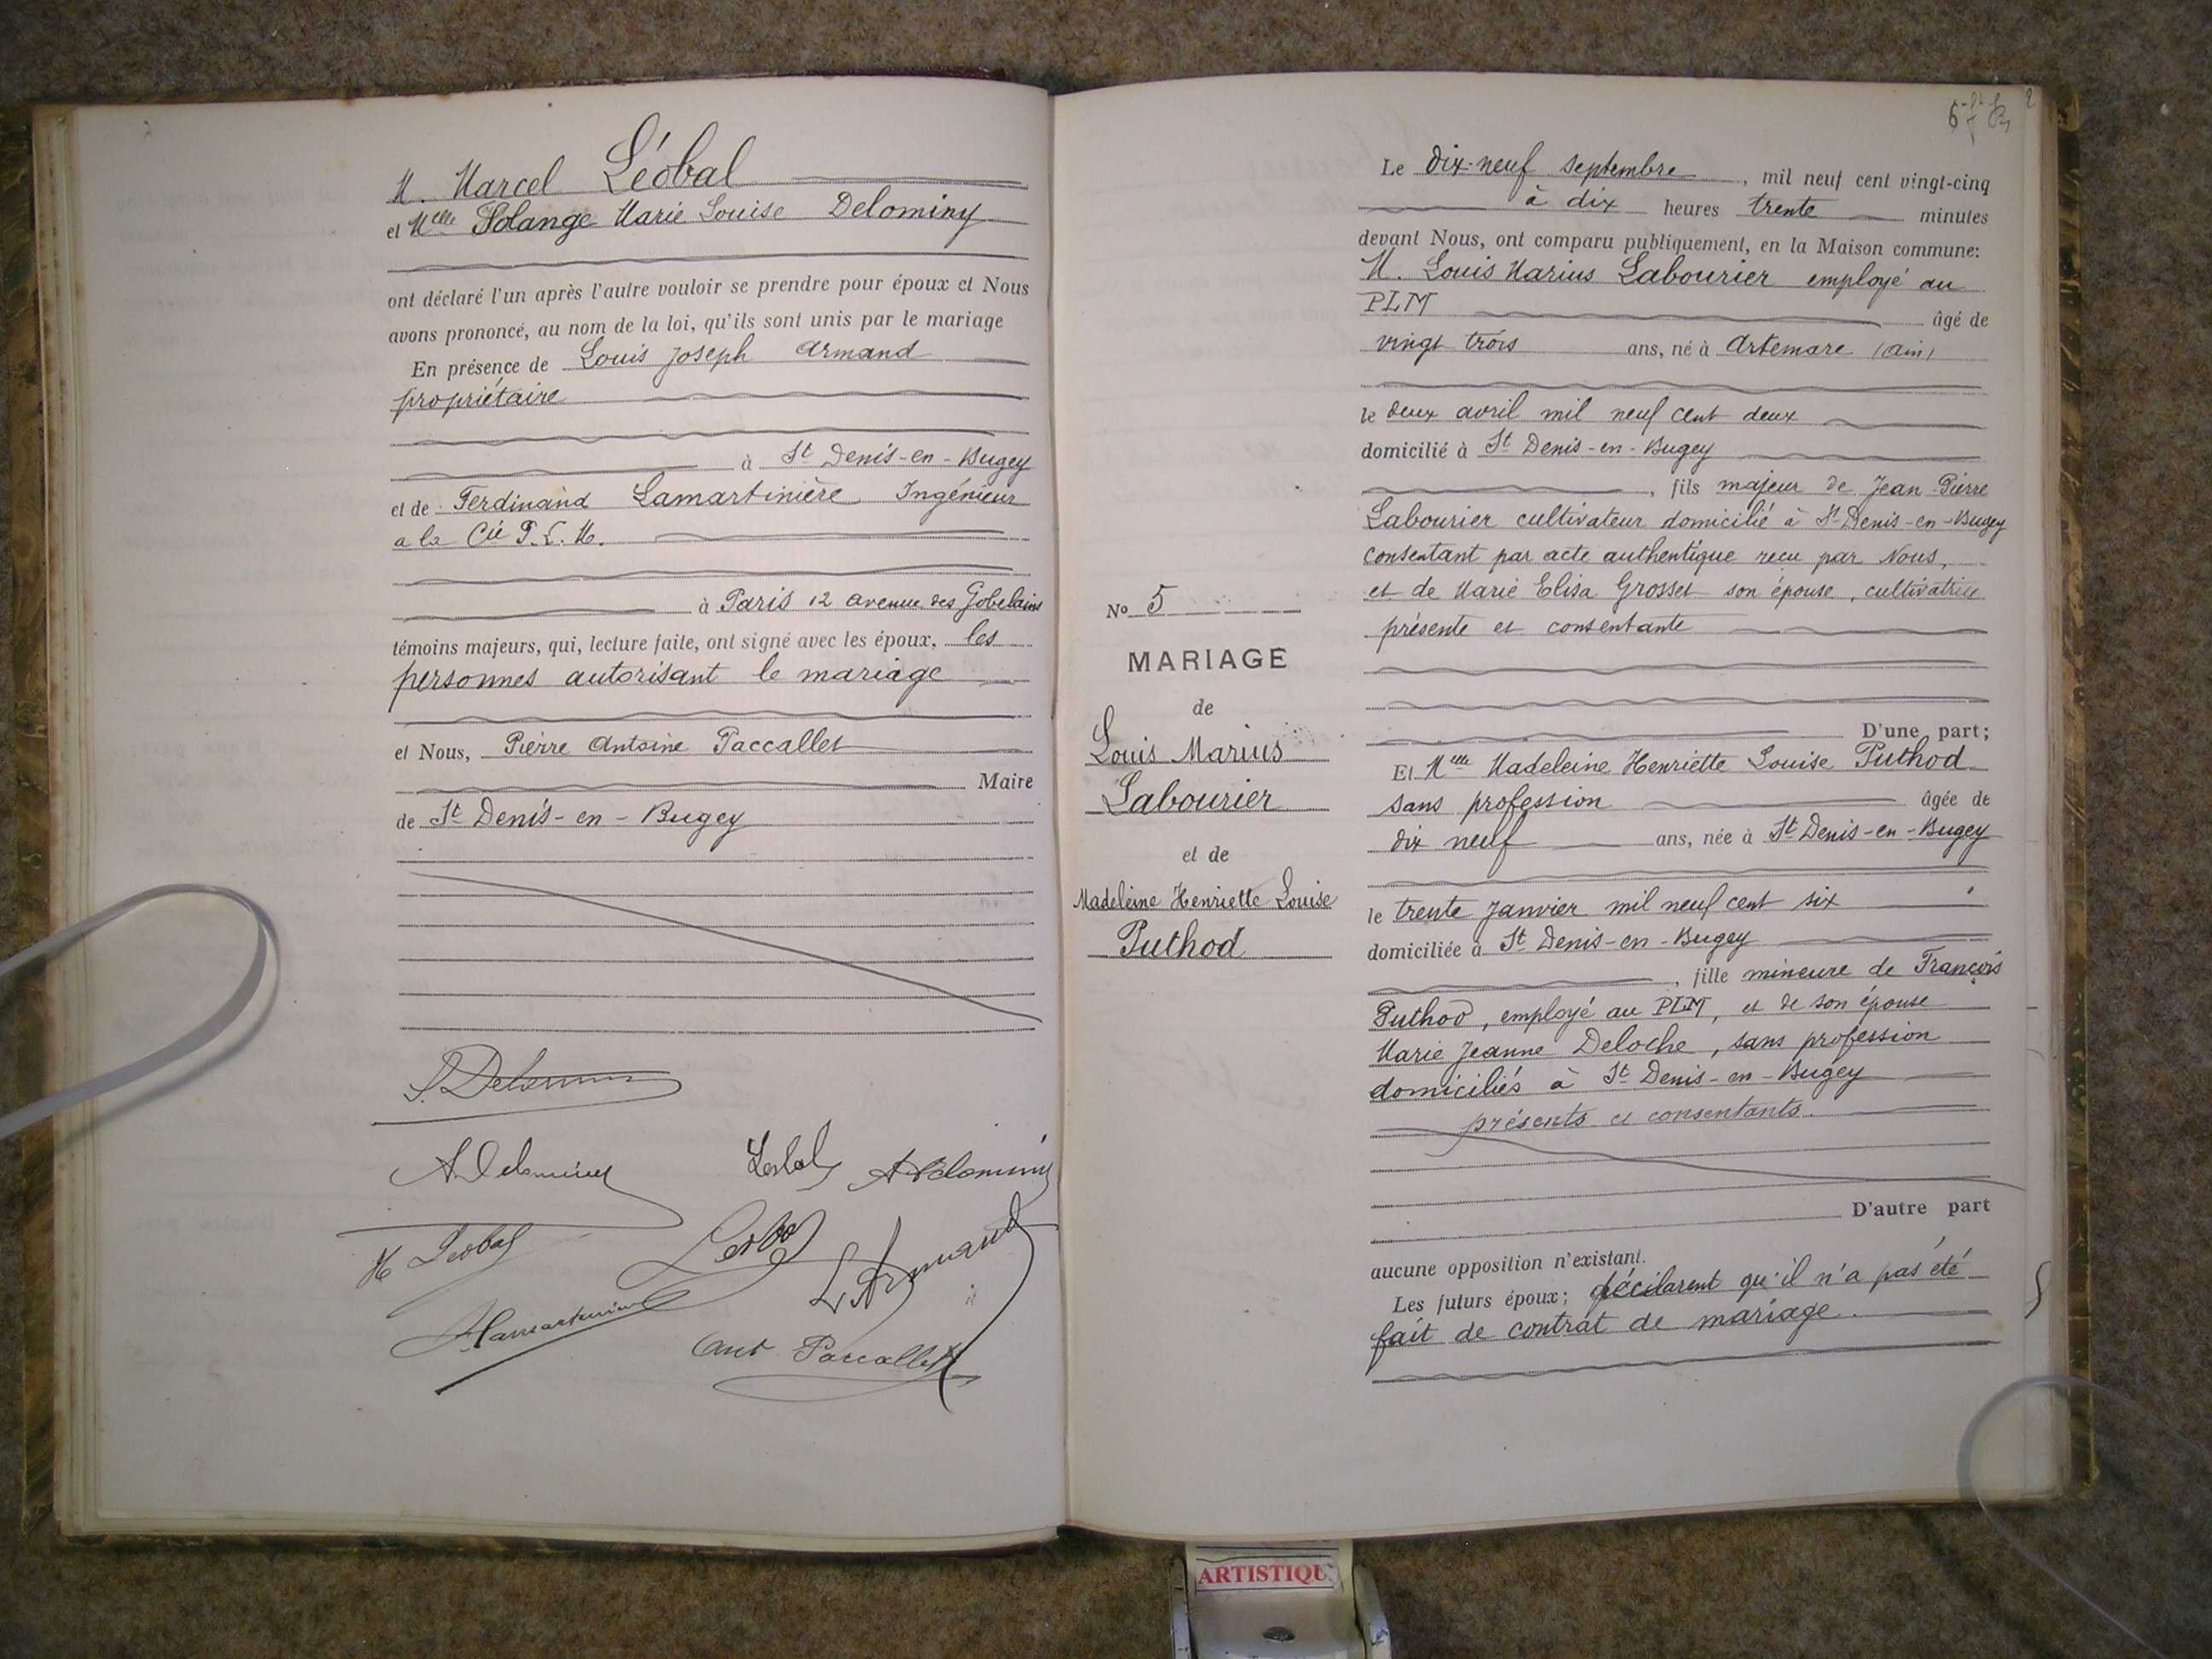 M. Marcel Léobal
et Melle Solange Marie Louise Delominy
ont déclaré l'un après l'autre vouloir se prendre pour époux et Nous
avons prononcé, au nom de la loi, qu'ils sont unis par le mariage
En présence de Louis Joseph Armand
propriétaire
à St Denis-en-Bugey
et de Ferdinand Lamartinière Ingénieur
a la Cie P.L.M.
à Paris 12 avenue des Gobelains
témoins majeurs, qui, lecture faite, ont signé avec les époux, les
personnes autorisant le mariage
et Nous, Pierre Antoine Paccallet
Maire
de St Denis-en-Bugey
A. Delominy
A Delominy
M Leobal
Leobal
L. Armand
Lamartinière
Ant Paccallet
No 5
MARIAGE
de
Louis Marius
Labourier
et de
Madeleine Henriette Louise
Puthod
Le dix-neuf septembre, mil neuf cent vingt-cinq
à dix heures trente minutes
devant Nous, ont comparu publiquement, en la Maison commune:
M. Louis Marius Labourier employé au
PLM âgé de
vingt trois ans, né à Artemare (ain)
le deux avril mil neuf cent deux
domicilié à St Denis-en-Bugey
, fils majeur de Jean Pierre
Labourier cultivateur domicilié à St Denis-en-Bugey
consentant par acte authentique recu par Nous,
et de Marie Elisa Grosset son épouse, cultivatrice
présente et consentante
D'une part;
Et Melle Madeleine Henriette Louise Puthod
sans profession âgée de
dix neuf ans, née à St Denis-en-Bugey
le trente Janvier mil neuf cent six
domiciliée à St Denis-en-Bugey
, fille mineure de François
Puthod, employé au PLM, et de son épouse
Marie Jeanne Deloche, sans profession
domiciliés à St Denis-en-Bugey
présents et consentants.
D'autre part
aucune opposition n'existant.
Les futurs époux; déclarent qu'il n'a pas été
fait de contrat de mariage.
ARTISTIQU